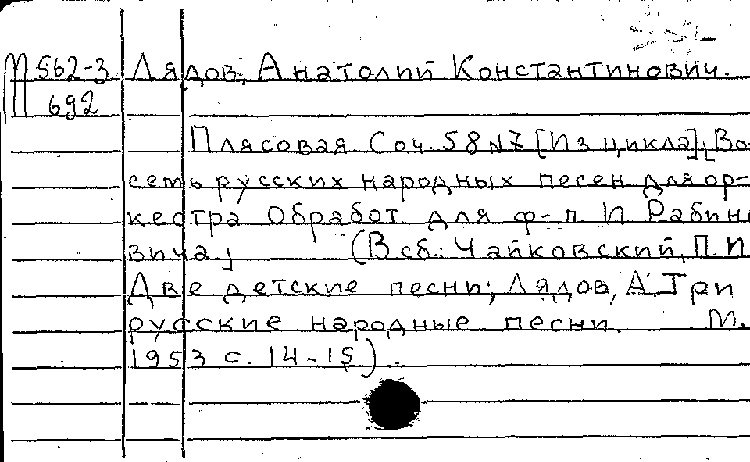 М 562-3 Лядов, Анатолий Константинович.
692
Плясовая. Соч. 58 №7 [Из цикла]: Во-
семь русских народных песен для ор-
кестра. Обработ. для ф-п. И. Рабин
вича; (В сб.: Чайковский, П.И.
Две детские песни; Лядов, А. Три
русские народные песни. М.
1953 с. 14-15).